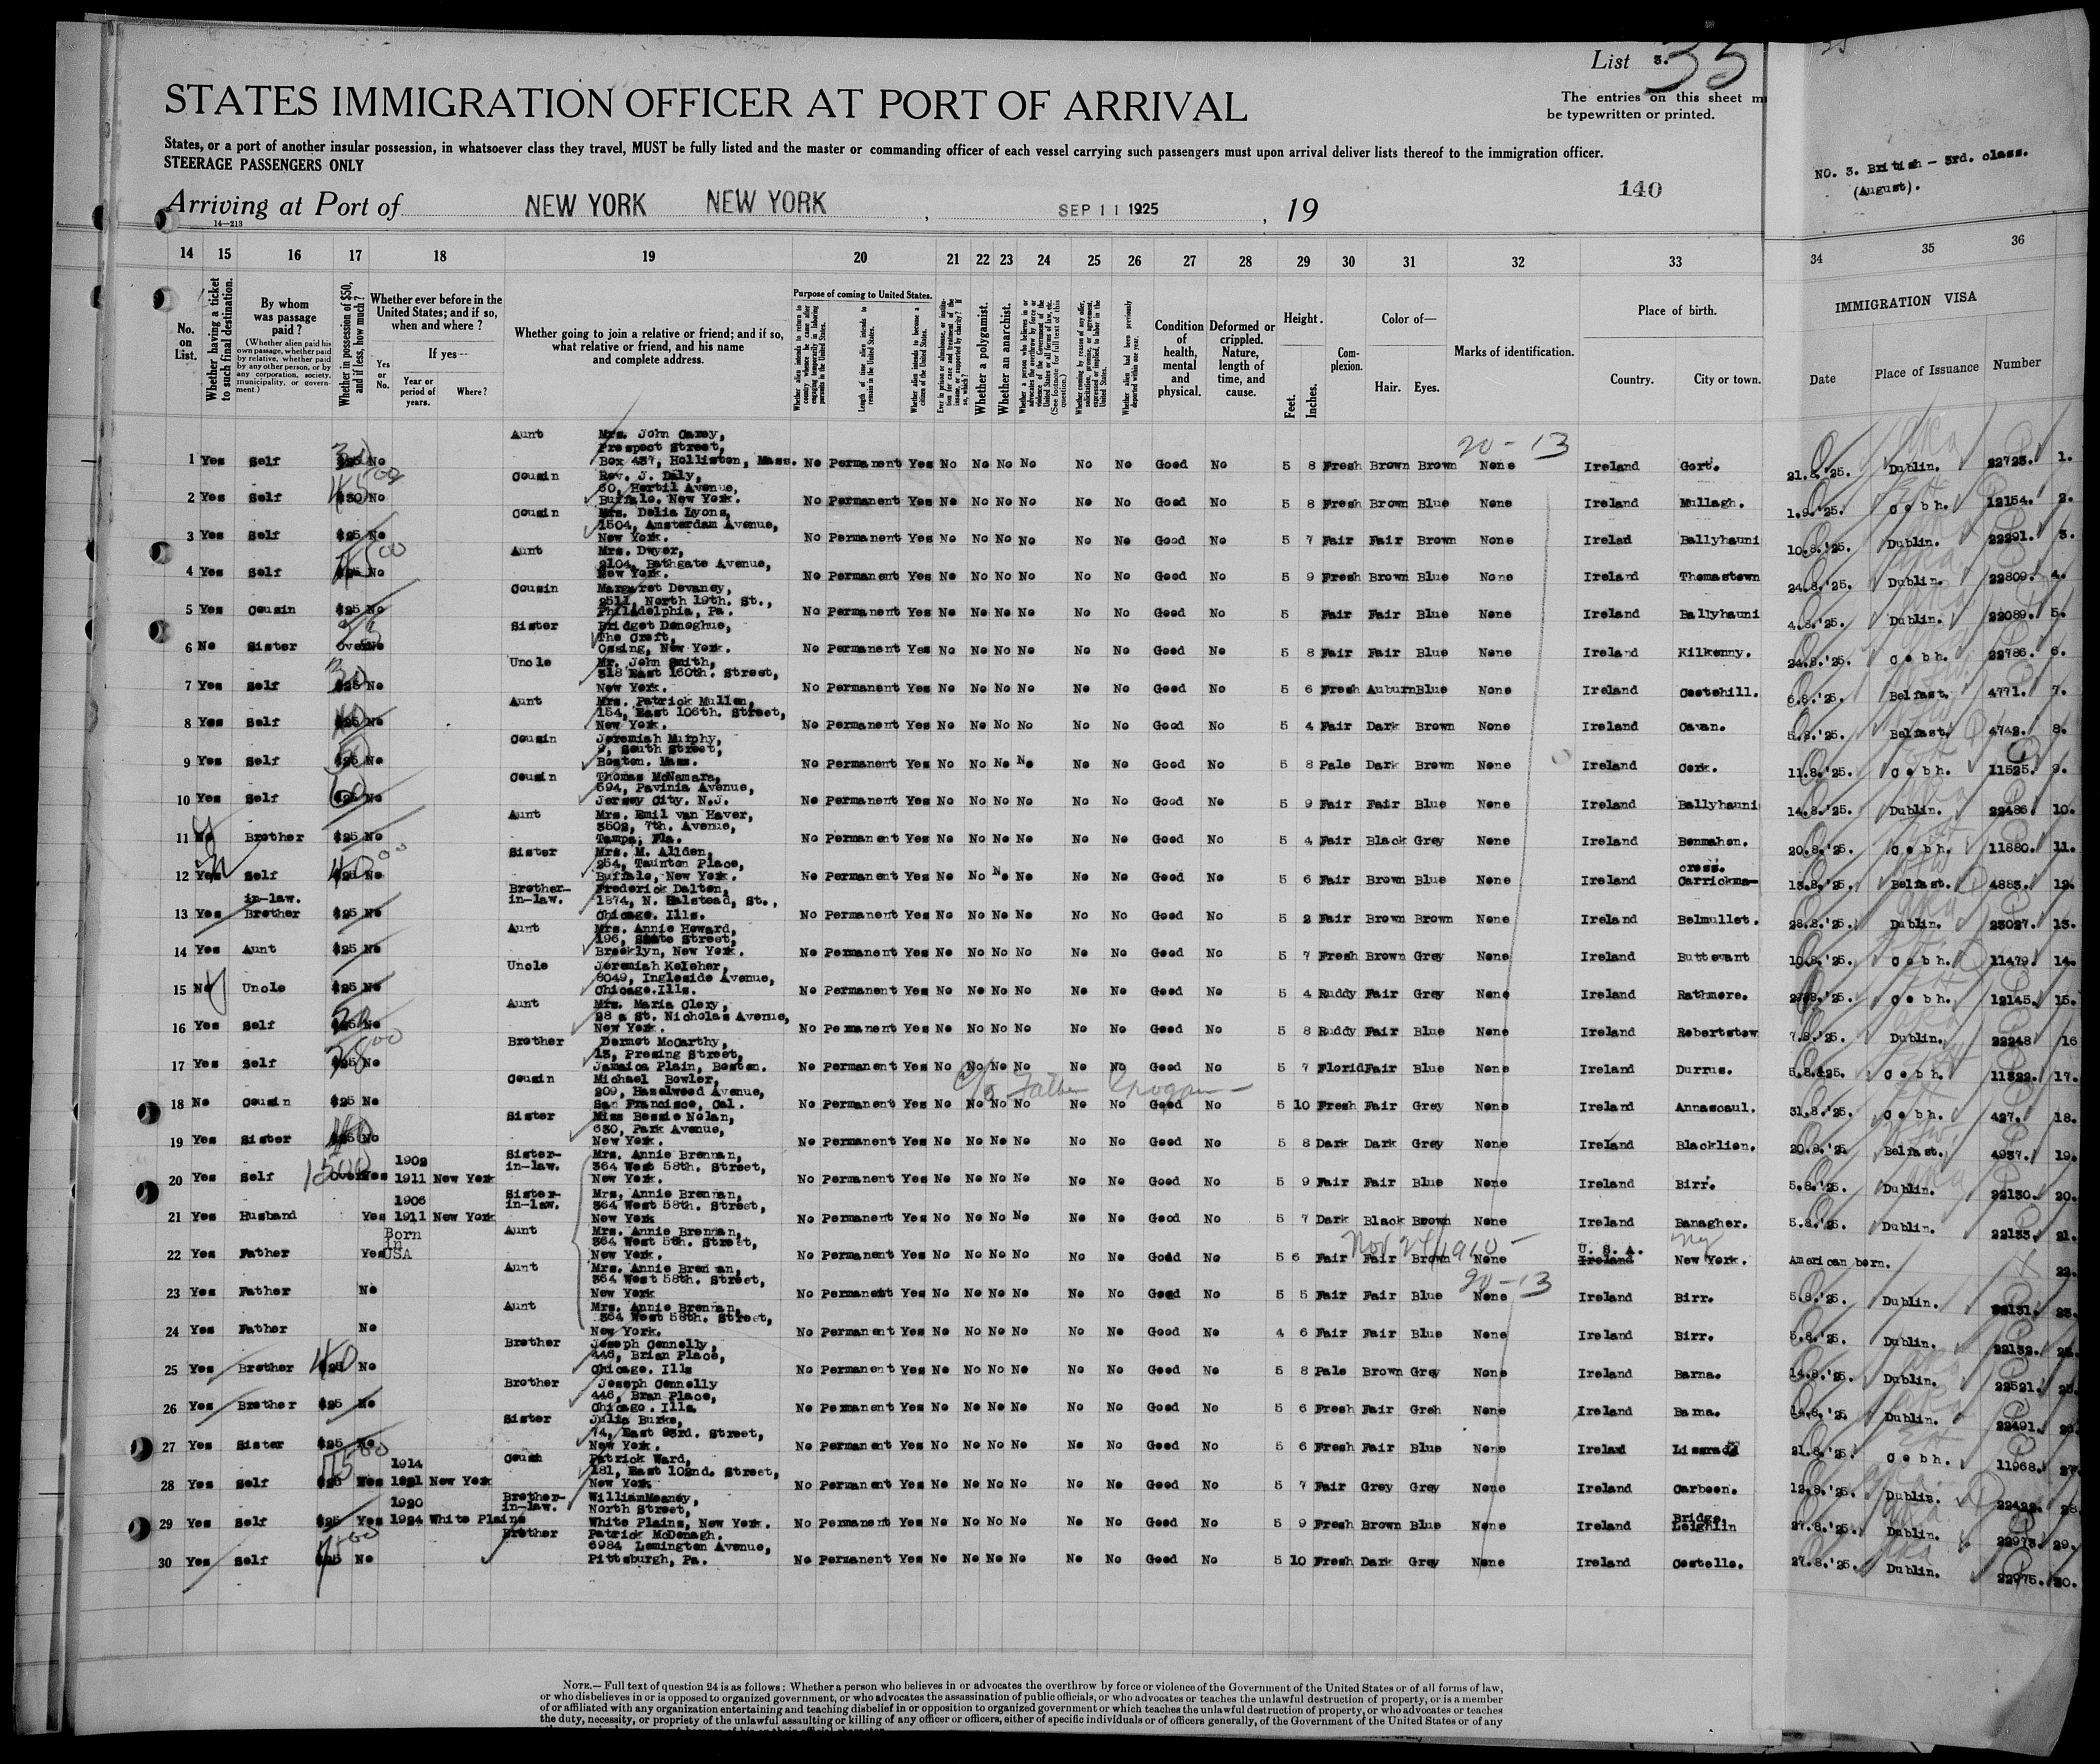 List 3. 35
STATES IMMIGRATION OFFICER AT PORT OF ARRIVAL
The entries on this sheet m
be typewritten or printed.
States, or a port of another insular possession, in whatsoever class they travel, MUST be fully listed and the master or commanding officer of each vessel carrying such passengers must upon arrival deliver lists thereof to the immigration officer.
STEERAGE PASSENGERS ONLY
NO. 3. British - 3rd. class.
(August).
140
Arriving at Port of NEW YORK NEW YORK , SEP 11 1925 , 19
14—213
14 15 16 17 18 19 20 21 22 23 24 25 26 27 28 29 30 31 32 33 34 35 36
No. on List.
Whether having a ticket to such final destination.
By whom was passage paid?
(Whether alien paid his own passage, whether paid by relative, whether paid by any other person, or by any corporation, society, municipality, or government.)
Whether in possession of $50, and if less, how much?
Whether ever before in the United States; and if so, when and where?
Yes or No.
If yes—
Year or period of years.
Where?
Whether going to join a relative or friend; and if so, what relative or friend, and his name and complete address.
Purpose of coming to United States.
Whether a polygamist.
Whether an anarchist.
Condition of health, mental and physical.
Deformed or crippled. Nature, length of time, and cause.
Height.
Feet.
Inches.
Complexion.
Color of—
Hair. Eyes.
Marks of identification.
Place of birth.
Country. City or town.
IMMIGRATION VISA
Date Place of Issuance Number
20-13
1 Yes Self No Aunt Mrs. John Carey, Prospect Street, Box 437, Holliston, Mass. No Permanent Yes No No No No No No Good No 5 8 Fresh Brown Brown None Ireland Gort. 21.8.'25. Dublin. 22723. 1.
2 Yes Self $30 No Cousin Rev. J. Daly, 60, Hertil Avenue, Buffalo, New York. No Permanent Yes No No No No No No Good No 5 8 Fresh Brown Blue None Ireland Mullagh. 1.9.'25. Cobh. 12154. 2.
3 Yes Self $25 No Cousin Mrs. Delia Lyons, 1504, Amsterdam Avenue, New York. No Permanent Yes No No No No No No Good No 5 7 Fair Fair Brown None Irelad Ballyhauni 10.8.'25. Dublin. 22291. 3.
4 Yes Self $25 No Aunt Mrs. Dwyer, 2104, Bathgate Avenue, New York. No Permanent Yes No No No No No No Good No 5 9 Fresh Brown Blue None Ireland Thomastown 24.8.'25. Dublin. 22809. 4.
5 Yes Cousin $25 No Cousin Margaret Devaney, 2511, North 19th. St., Philadelphia, Pa. No Permanent Yes No No No No No No Good No 5 Fair Fair Blue None Ireland Ballyhauni 4.8.'25. Dublin. 22089. 5.
6 No Sister Over No Sister Bridget Donoghue, The Croft, Ossing, New York. No Permanent Yes No No No No No No Good No 5 8 Fair Fair Blue None Ireland Kilkenny. 24.8.'25. Cobh. 22786. 6.
7 Yes Self $25 No Uncle Mr. John Smith, 318 East 160th. Street, New York. No Permanent Yes No No No No No No Good No 5 6 Fresh Auburn Blue None Ireland Cootehill. 6.8.'25. Belfast. 4771. 7.
8 Yes Self $25 No Aunt Mrs. Patrick Mullen, 154, East 106th. Street, New York. No Permanent Yes No No No No No No Good No 5 4 Fair Dark Brown None Ireland Cavan. 5.8.'25. Belfast. 4742. 8.
9 Yes Self $25 No Cousin Jeremiah Murphy, 9, South Street, Boston. Mass. No Permanent Yes No No No No No No Good No 5 8 Pale Dark Brown None Ireland Cork. 11.8.'25. Cobh. 11525. 9.
10 Yes Self $25 No Cousin Thomas McNamara, 594, Pavinia Avenue, Jersey City. N.J. No Permanent Yes No No No No No No Good No 5 9 Fair Fair Blue None Ireland Ballyhauni 14.8.'25. Dublin. 22486. 10.
11 No Brother $25 No Aunt Mrs. Emil van Haver, 3502, 7th. Avenue, Tampa, Fla. No Permanent Yes No No No No No No Good No 5 4 Fair Black Grey None Ireland Bonmahon. 20.8.'25. Cobh. 11880. 11.
12 Yes Self $25 No Sister Mrs. M. Allden, 254, Taunton Place, Buffalo, New York. No Permanent Yes No No No No No No Good No 5 6 Fair Brown Blue None Ireland Carrickma-cross. 13.8.'25. Belfast. 4883. 12.
13 Yes Brother in-law. $25 No Brother-in-law. Frederick Dalton, 1874, N. Halstead, St., Chicago. Ills. No Permanent Yes No No No No No No Good No 5 2 Fair Brown Brown None Ireland Belmullet. 28.8.'25. Dublin. 23027. 13.
14 Yes Aunt $25 No Aunt Mrs. Annie Howard, 196, State Street, Brooklyn, New York. No Permanent Yes No No No No No No Good No 5 7 Fresh Brown Grey None Ireland Buttevant 10.8.'25. Cobh. 11479. 14.
15 No Uncle $25 No Uncle Jeremiah Keleher, 8049, Ingleside Avenue, Chicago.Ills. No Permanent Yes No No No No No No Good No 5 4 Ruddy Fair Grey None Ireland Rathmore. Cobh. 12145. 15.
16 Yes Self $25 No Aunt Mrs. Maria Clery, 28 a St. Nicholas Avenue, New York. No Pemanent Yes No No No No No No Good No 5 8 Ruddy Fair Blue None Ireland Robertstow 7.8.'25. Dublin. 22248 16
17 Yes Self $25 No Brother Dermot McCarthy, 13, Presing Street, Jamaica Plain, Boston. No Permanent Yes No No No No No No Good No 5 7 Florid Fair Blue None Ireland Durrus. Cobh. 11322. 17.
c/o Father
18 No Cousin $25 No Cousin Michael Bowler, 209, Hazelwood Avenue, San Francisco, Cal. No Permanent Yes No No No No No No Good No 5 10 Fresh Fair Grey None Ireland Annascaul. 31.8.'25. Cobh. 427. 18.
19 Yes Sister $25 No Sister Miss Bessie Nolan, 630, Park Avenue, New York. No Permanent Yes No No No No No No Good No 5 8 Dark Dark Grey None Ireland Blacklion. 20.8.'25. Belfast. 4937. 19.
20 Yes Self 1500 Over Yes 1902 1911 New York Sister-in-law. Mrs. Annie Brennan, 364 West 58th. Street, New York. No Permanent Yes No No No No No No Good No 5 9 Fair Fair Blue None Ireland Birr. 5.8.'25. Dublin. 22130. 20.
21 Yes Husband Yes 1906 1911 New York Sister-in-law. Mrs. Annie Brennan, 364 West 58th. Street, New York No Permanent Yes No No No No No No Good No 5 7 Dark Black Brown None Ireland Banagher. 5.8.'25. Dublin. 22133. 21.
22 Yes Father Yes Born in USA Aunt Mrs. Annie Brennan, 364 West 58th. Street, New York. No Permanent Yes No No No No No No Good No 5 6 Fair Fair Brown None Nov 27/1910- U.S.A. Ireland New York. NY American born. 22.
20-13
23 Yes Father No Aunt Mrs. Annie Brennan, 364 West 58th. Street, New York No Permanent Yes No No No No No No Good No 5 5 Fair Fair Blue None Ireland Birr. 5.8.'25. Dublin. 22131. 23.
24 Yes Father No Aunt Mrs. Annie Brennan, 364 West 58th. Street, New York. No Permanent Yes No No No No No No Good No 4 6 Fair Fair Blue None Ireland Birr. 5.8.'25. Dublin. 22132. 24.
25 Yes Brother $25 40 No Brother Joseph Connelly, 446, Brian Place, Chicago. Ills No Permanent Yes No No No No No No Good No 5 8 Pale Brown Grey None Ireland Barna. 14.8.'25. Dublin. 22521. 25.
26 Yes Brother $25 No Brother Joseph Connelly 446, Bran Place, Chicago. Ills. No Permanent Yes No No No No No No Good No 5 6 Fresh Fair Greh None Ireland Barna. 14.8.'25. Dublin. 22491. 26.
27 Yes Sister $25 No Sister Julia Burke, 74, East 93rd. Street, New York. No Permanent Yes No No No No No No Good No 5 6 Fresh Fair Blue None Irelad 21.8.'25. Cobh. 11968. 27.
28 Yes Self $25 Yes 1914 1921 New York Cousin Patrick Ward, 181, East 102nd. Street, New York No Permanent Yes No No No No No No Good No 5 7 Fair Grey Grey None Ireland Carbeen. 12.8.'25. Dublin. 22422. 28.
29 Yes Self $25 Yes 1920 1924 White Plains Brother-in-law. William Meaney, North Street, White Plains, New York. No Permanent Yes No No No No No No Good No 5 9 Fresh Brown Blue None Ireland Leighlin Bridge. 27.8.'25. Dublin. 22973. 29.
30 Yes Self $25 No Brother Patrick McDonagh. 6984 Lemington Avenue, Pittsburgh, Pa. No Permanent Yes No No No No No No Good No 5 10 Fresh Dark Grey None Ireland Costello. 27.8.'25. Dublin. 22975. 30.
NOTE.—Full text of question 24 is as follows: Whether a person who believes in or advocates the overthrow by force or violence of the Government of the United States or of all forms of law,
or who disbelieves in or is opposed to organized government, or who advocates the assassination of public officials, or who advocates or teaches the unlawful destruction of property, or is a member
of or affiliated with any organization entertaining and teaching disbelief in or opposition to organized government or which teaches the unlawful destruction of property, or who advocates or teaches
the duty, necessity, or propriety of the unlawful assaulting or killing of any officer or officers, either of specific individuals or of officers generally, of the Government of the United States or of any